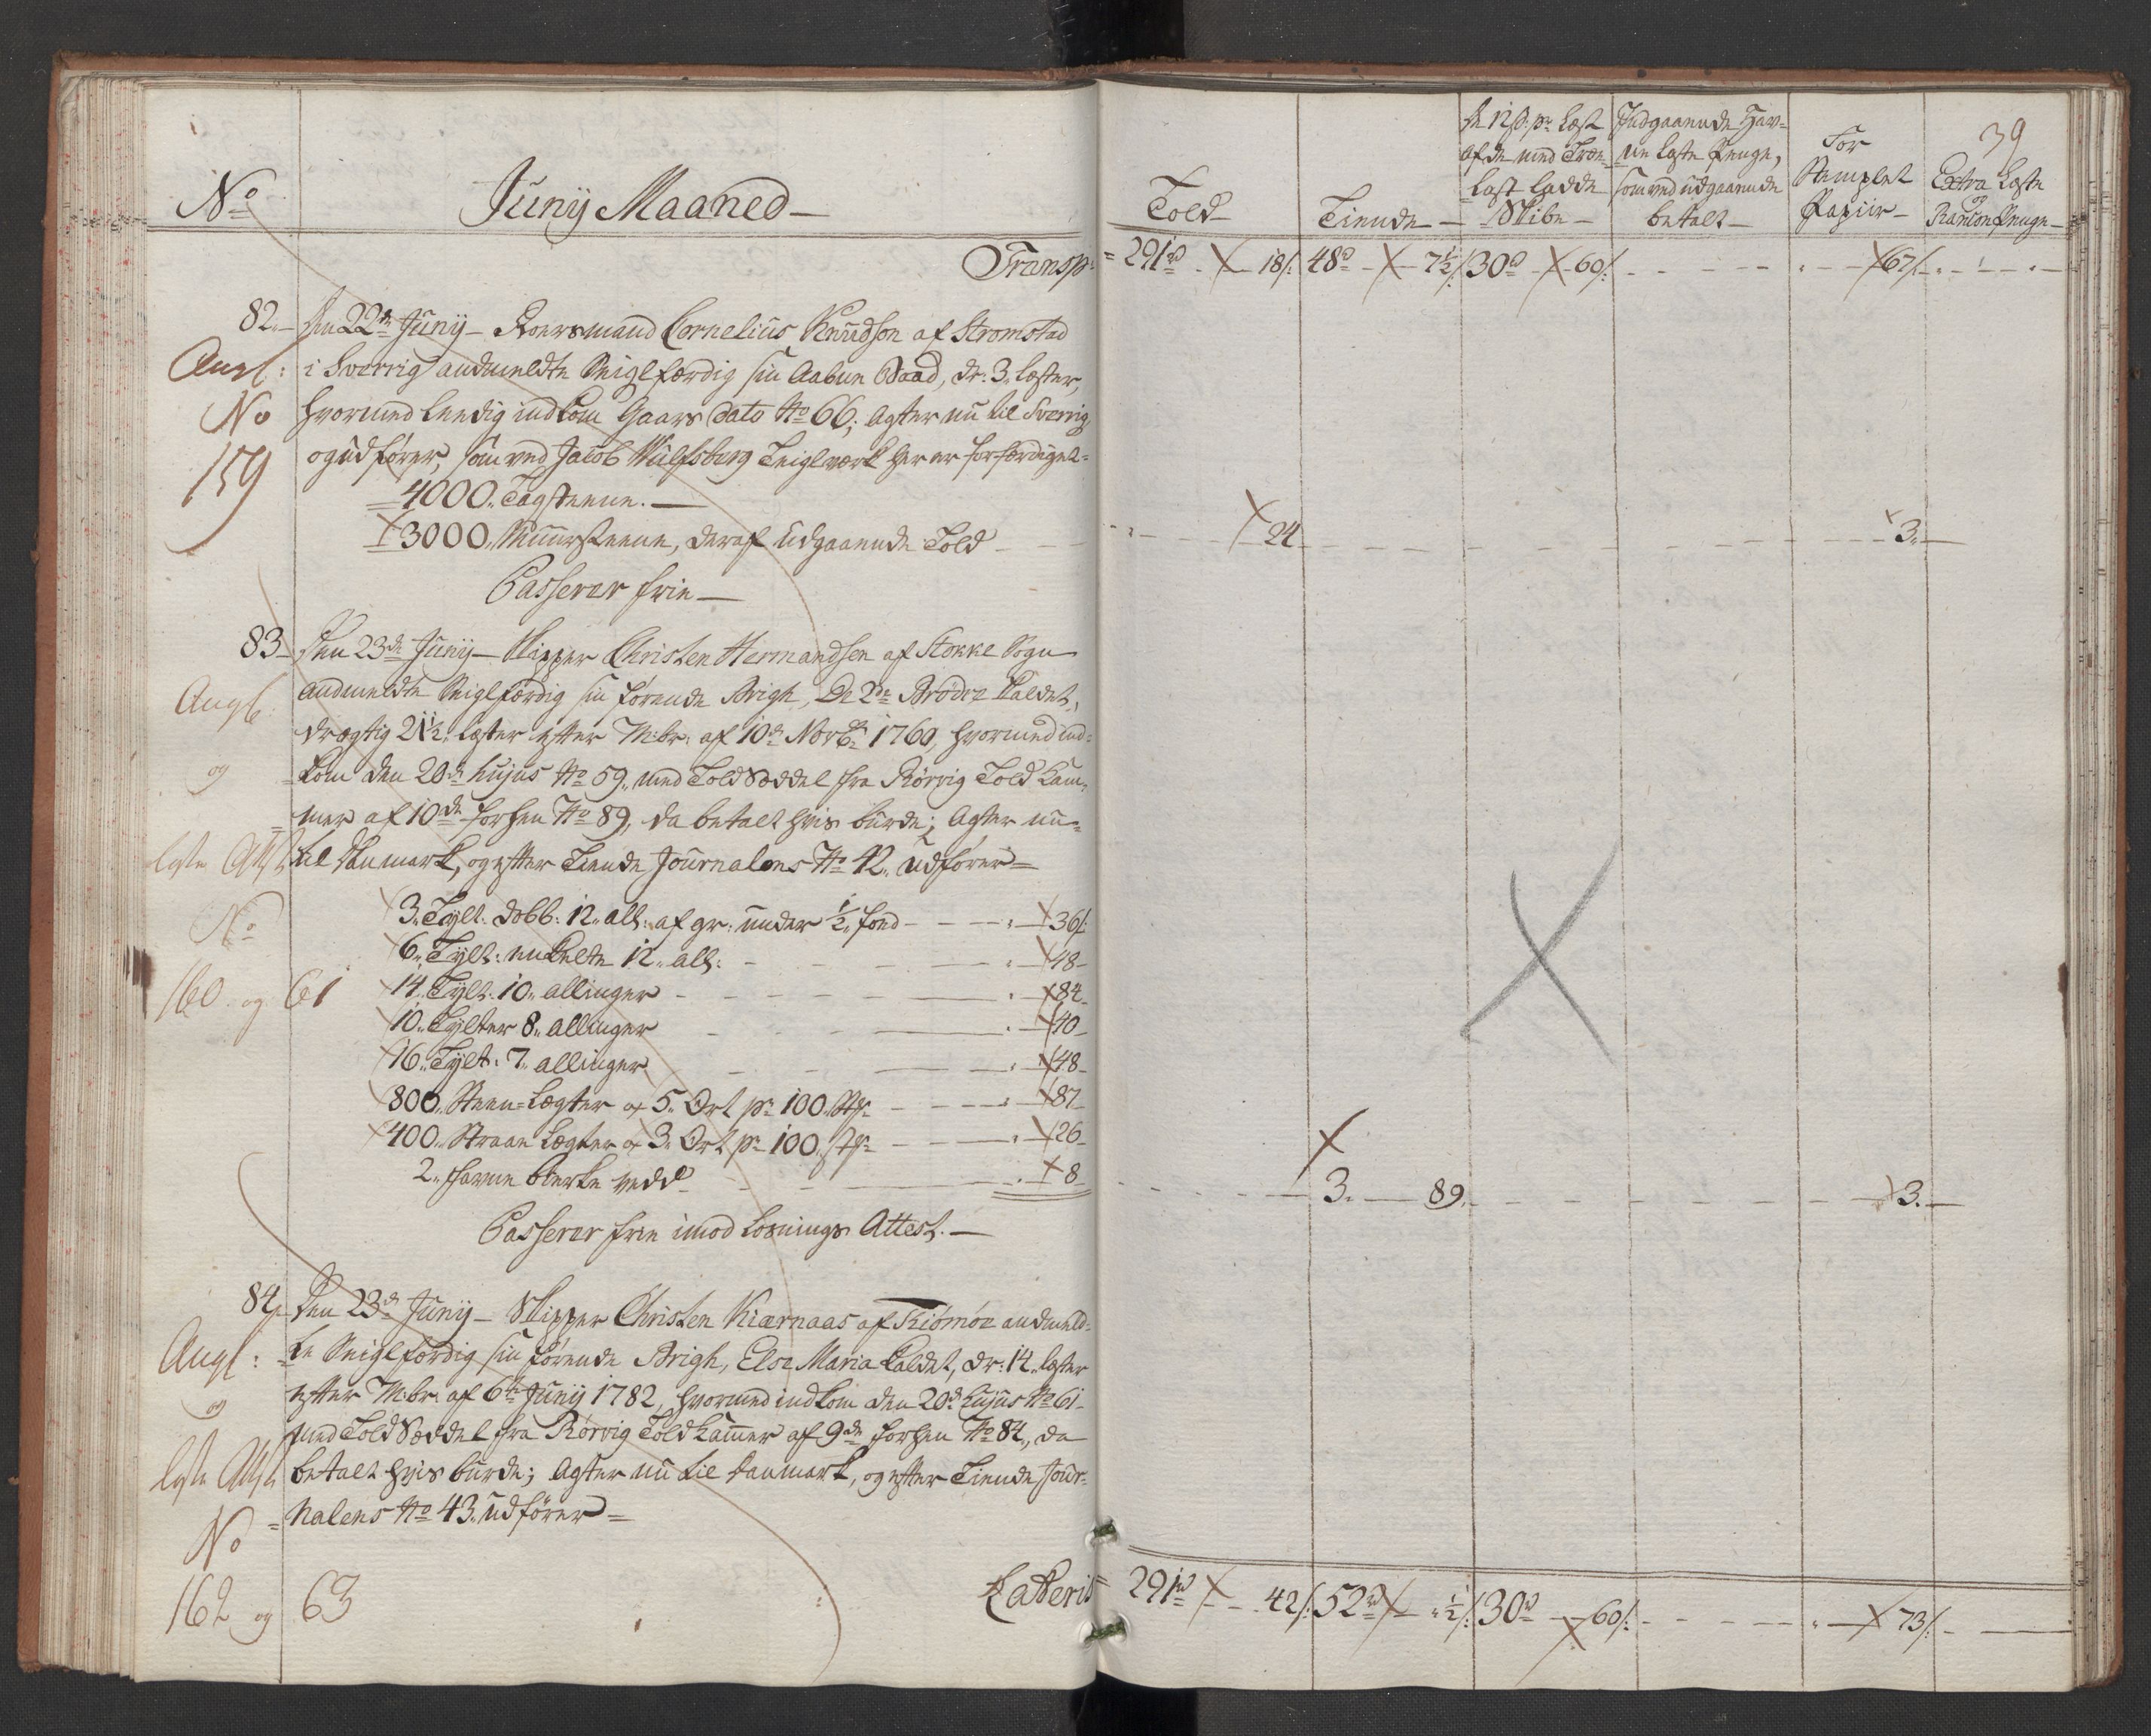 No
Junij Maaned
Transp:
82. Den 22de Junij Qversmand Cornelius Knudson af Stromstad
Angl: i Sverrig andmeldte Seiglfærdig sin Aabne Baad, dr: 3 læster,
No hvormed leedig indkom Gaars Dato No 66; Agter nu til Sverrig
159 og udfører, som ved Jacob Wulfsberg Teiglværk her er forfærdiget
4000 Tagsteene.
3000 Muursteene, deraf Udgaaende Told
Passerer frie
83 Den 23de Junij Skipper Christen Hermandsen af Stokke Sogn
Angl: andmeldte Seiglfærdig sin førende Brigh, De 2de Brødre kaldet,
drægtig 21½ læster efter M:br: af 10de Novbr 1760, hvormed ind-
og kom den 20de hujus No 59 med Told Seddel fra Rørvig Told Kam-
mer af 10de forhen No 89, da betalt hvis burde; Agter nu
læste Attest til Danmark, og efter Tiende Journalens No 42 udfører
No
3 Tylt: dobb: 12 all: af gr: under ½ fod 36 s:
6 Tylt: enkelte 12 all: 48
160 og 61 14 Tylt: 10 allinger 84
10 Tylter 8 allinger 40
16 Tylt: 7 allinger 48
800 Steen-Lægter a 5 Ort pr 100 Stk 87
400 Straae Lægter a 3 Ort pr 100 Stk 26
2 favne birke vedd 8
Passerer frie imod losnings Attest.
84 Den 23de Junij Skipper Christen Kiærnaas af Kiømøe andmeld-
Angl: te Seiglfærdig sin førende Brigh, Else Maria kaldet, dr: 14 læster
og efter M:br: af 6te Junij 1782, hvormed indkom den 20de hujus No 61
med Told Seddel fra Rørvig Toldkammer af 9de forhen No 84, da
læste Attest betalt hvis burde; Agter nu til Danmark, og efter Tiende Jour-
No nalens No 43 udfører
162 og 63
Lateris
39
Told
Tiende
De 12 s: pr Læst af de med Træ Last ladde Skibe
Indgaaende Hav- ne Laste Penge, som ved udgaaende betalt
For Stemplet Papiir
Extra Laste og Rancon Penge
291 rd 18 s: 48 rd 7½ s: 30 rd 60 s: 67 s:
24 3
3 89 3
291 rd 42 s: 52 rd ½ s: 30 rd 60 s: 73 s: